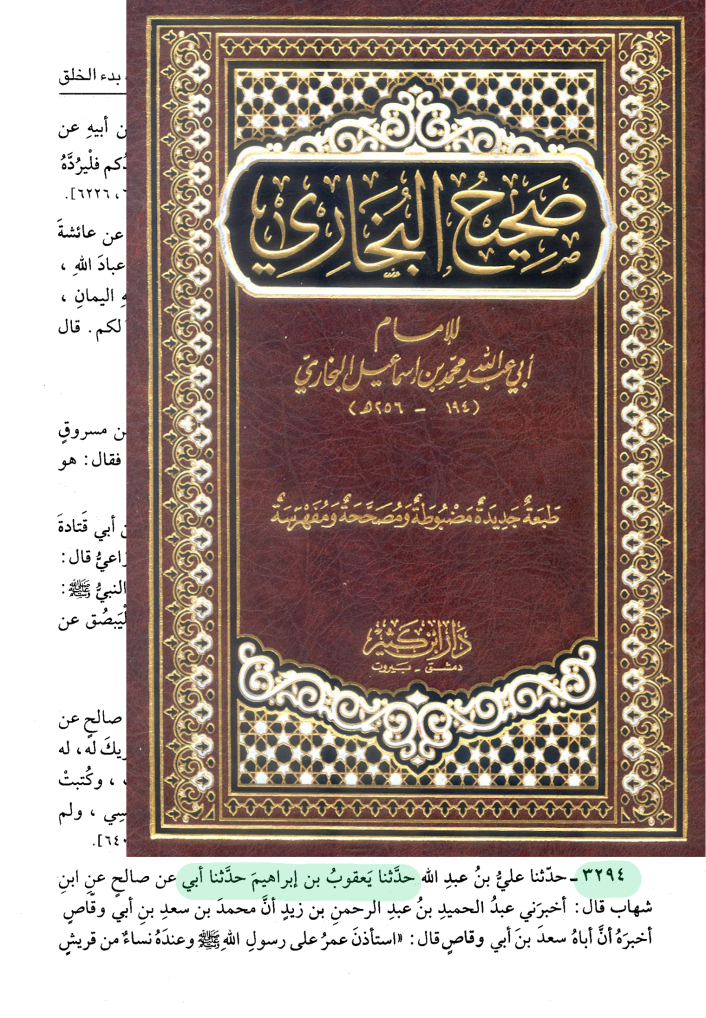 بدء الخلق
ن أبيهِ عن
كم فليرُدَّهُ
، ٦٢٢٦].
عن عائشةَ
عبادَ اللهِ ،
اليمانِ ،
لكم. قال
ن مسروقٍ
فقال: هو
أبي قَتادةَ
زاعيُّ قال:
النبيُّ ﷺ:
لْيَبصُق عن
صالحٍ عن
ريكَ له، له
، وكُتبتْ
سِي ، ولم
صَحِيحُ البُخَارِي
للإمام
أبي عبد الله محمد بن إسماعيل البخاري
(١٩٤ - ٢٥٦ هـ)
طَبعَةٌ جَدِيدَةٌ مَضْبُوطَةٌ وَمُصَحَّحَةٌ وَمُفَهْرَسَةٌ
دار ابن كثير
دمشق - بيروت
٣٢٩٤ ـ حدّثنا عليُّ بنُ عبدِ الله حدَّثنا يَعقوبُ بن إبراهيمَ حدَّثنا أبي عن صالحٍ عنِ ابنِ
شهاب قال: أخبرَني عبدُ الحميدِ بنُ عبدِ الرحمنِ بن زيدٍ أنَّ محمدَ بن سعدِ بنِ أبي وقّاصٍ
أخبرَهُ أنَّ أباهُ سعدَ بنَ أبي وقاصٍ قال: «استأذنَ عمرُ على رسولِ اللهِ ﷺ وعندَهُ نساءٌ من قريشٍ